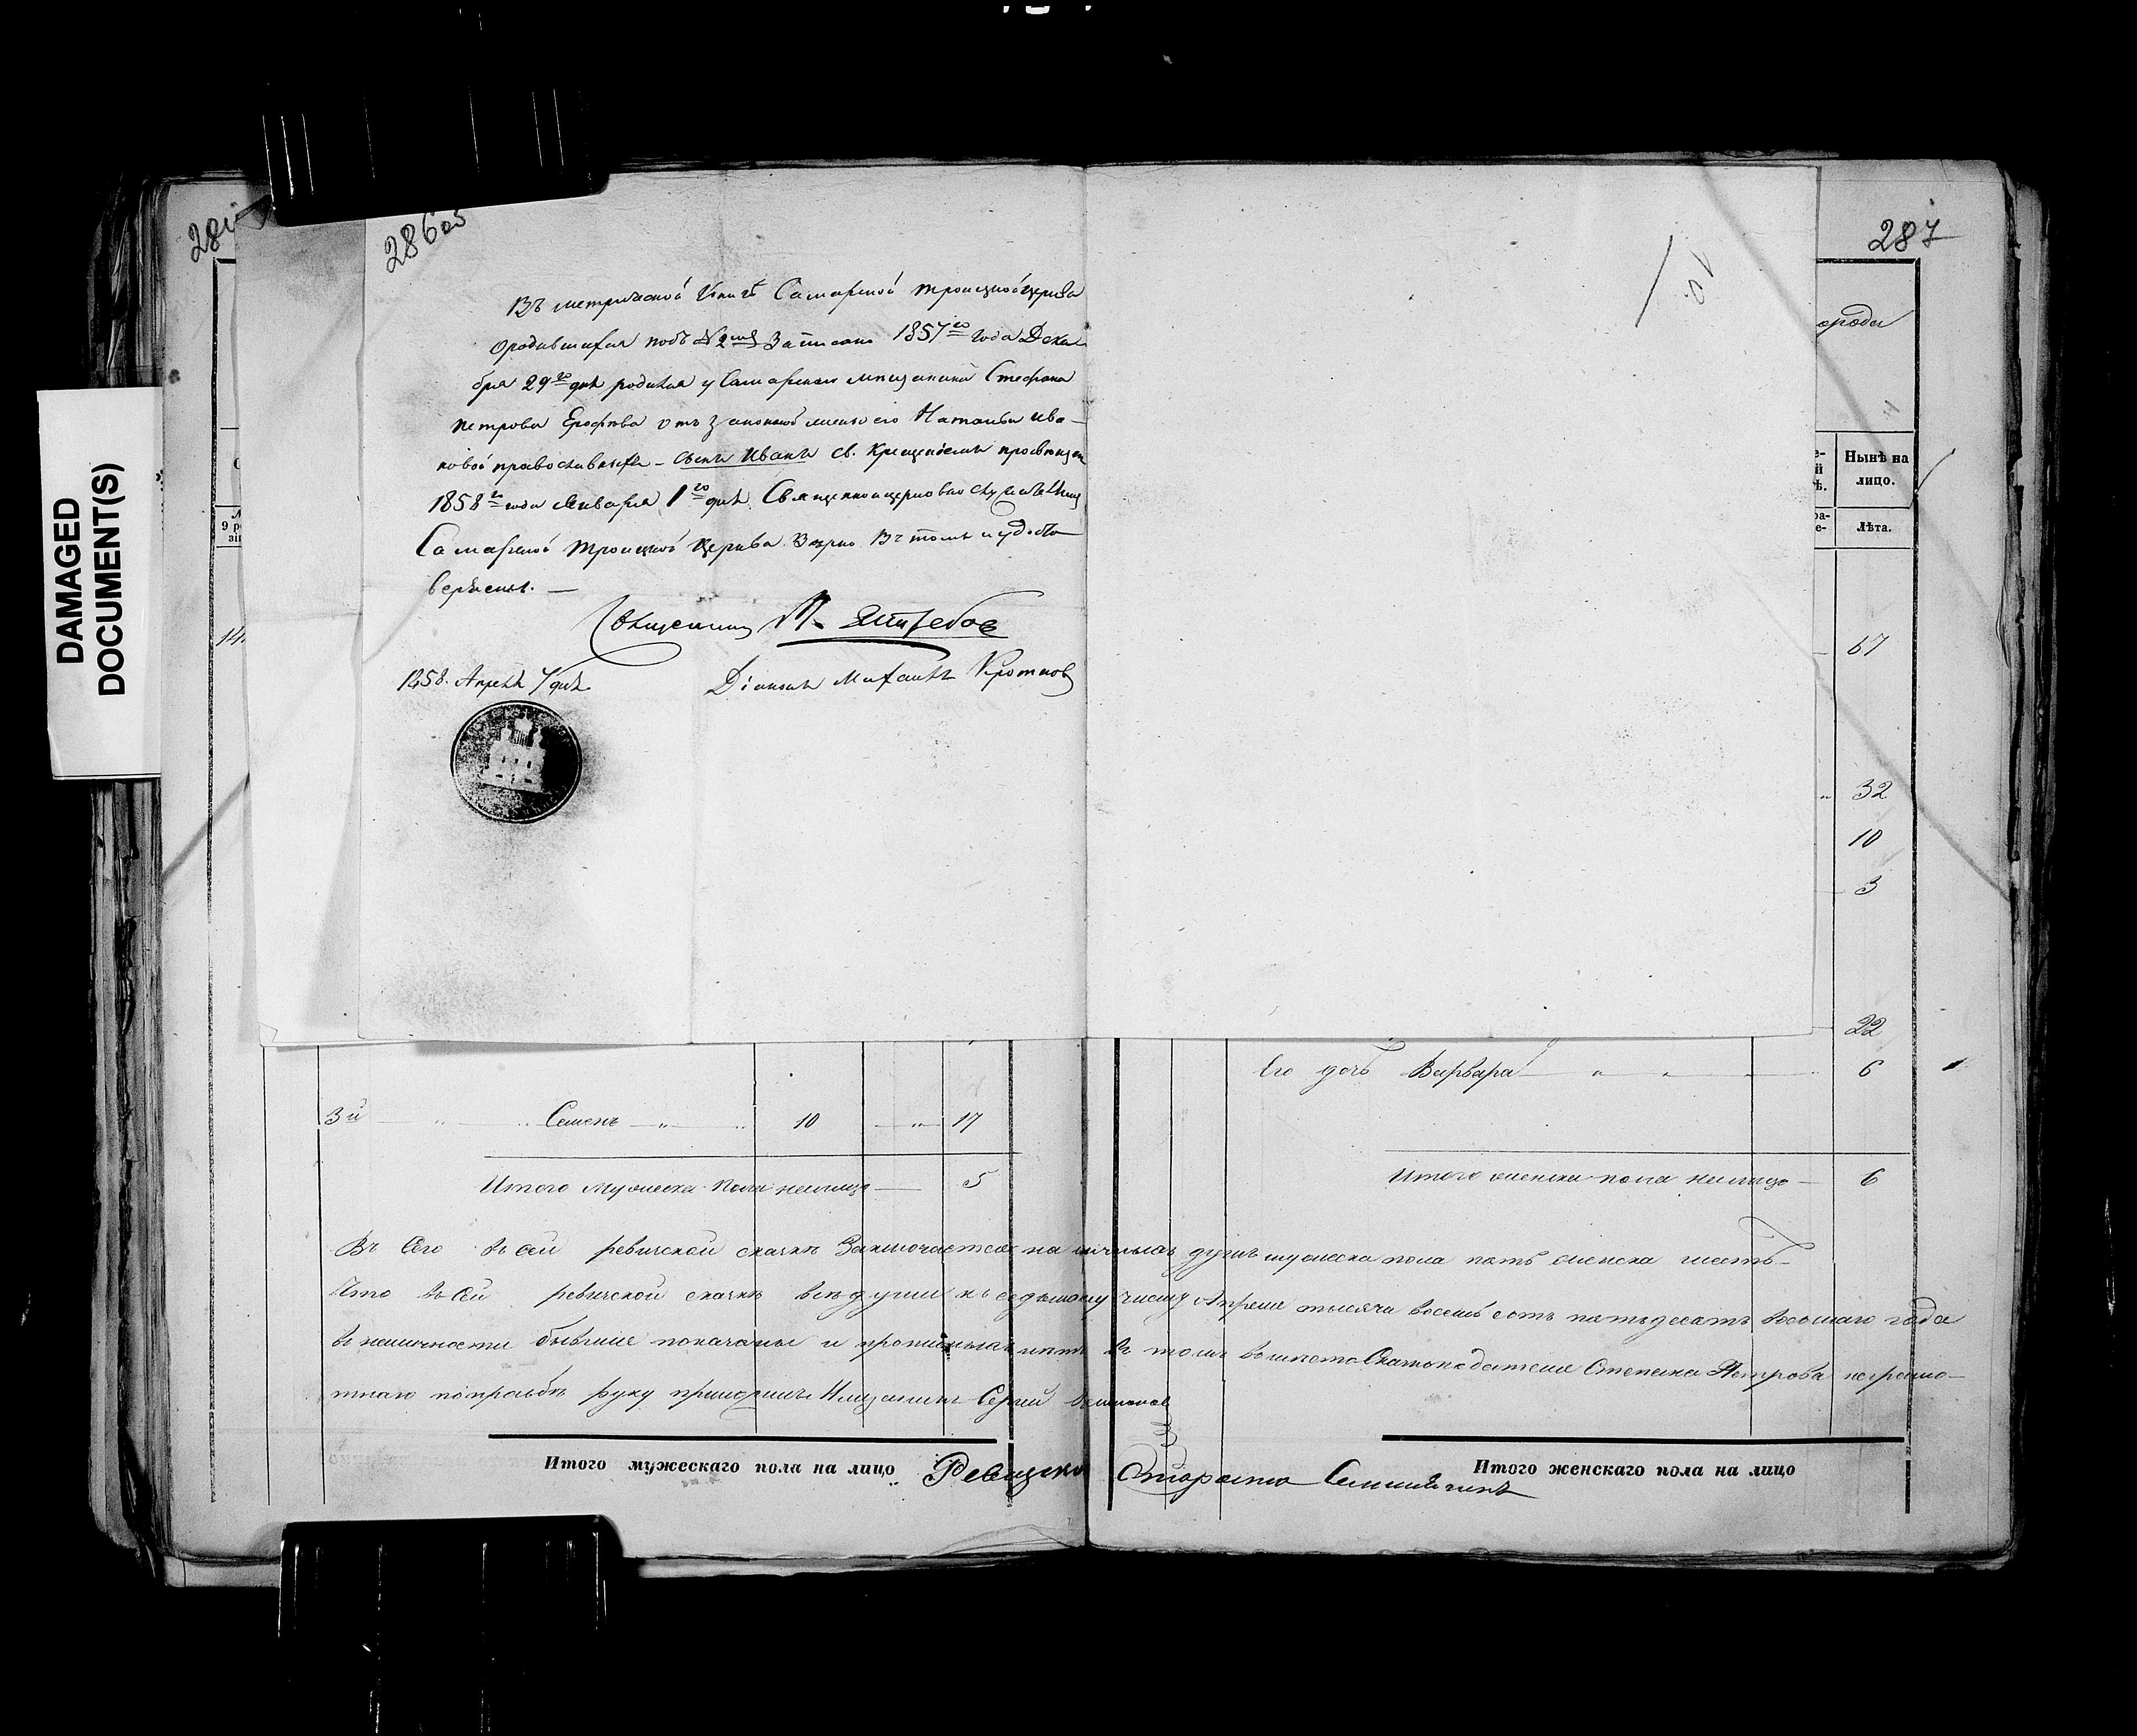 DAMAGED
DOCUMENT(S)
286об
287
Въ метрической Книгѣ Самарской Троицкой церкви
ородившихся подъ №2мъ Записано 1857го года Дека
бря 29го дня родился у Самарскаго мѣщанина Стефана
петрова Ерофѣева отъ законной жены его Натальи ива-
новой православныхъ - сынъ Иванъ св. Крещеніемъ просвѣщен
1858го года Января 1го дня. Священноцерковнослужители
Самарской Троицкой Церкви Вѣрно Въ томъ и удосто
веряемъ. —
Священникъ Ястребов
1858. Апрѣля 7 дня
Діаконъ Михаилъ Кротков
ороды
Нынѣ на
лицо.
9 р
Лѣта.
14
67
32
10
3
22
Его дочь Варвара 6
3й Семенъ 10 17
Итого Мужеска Пола налицо 5
Итого женска пола налицо 6
Въ Сей ревизской сказкѣ Заключается на личныхъ душъ мужеска пола пять женска шесть
Что въ Сей ревизской сказкѣ всѣ души къ седьмому числу Апреля тысяча восемь сотъ пятьдесятъ восьмаго года
въ наличности бывшие показаны и прописныхъ нѣтъ въ томъ вместо Сказкоподателя Степана Петрова неграмо-
тнаго попрозьбѣ руку приложилъ Мещанинъ Сергей
Итого мужескаго пола на лицо
Ревизской Староста
Итого женскаго пола на лицо